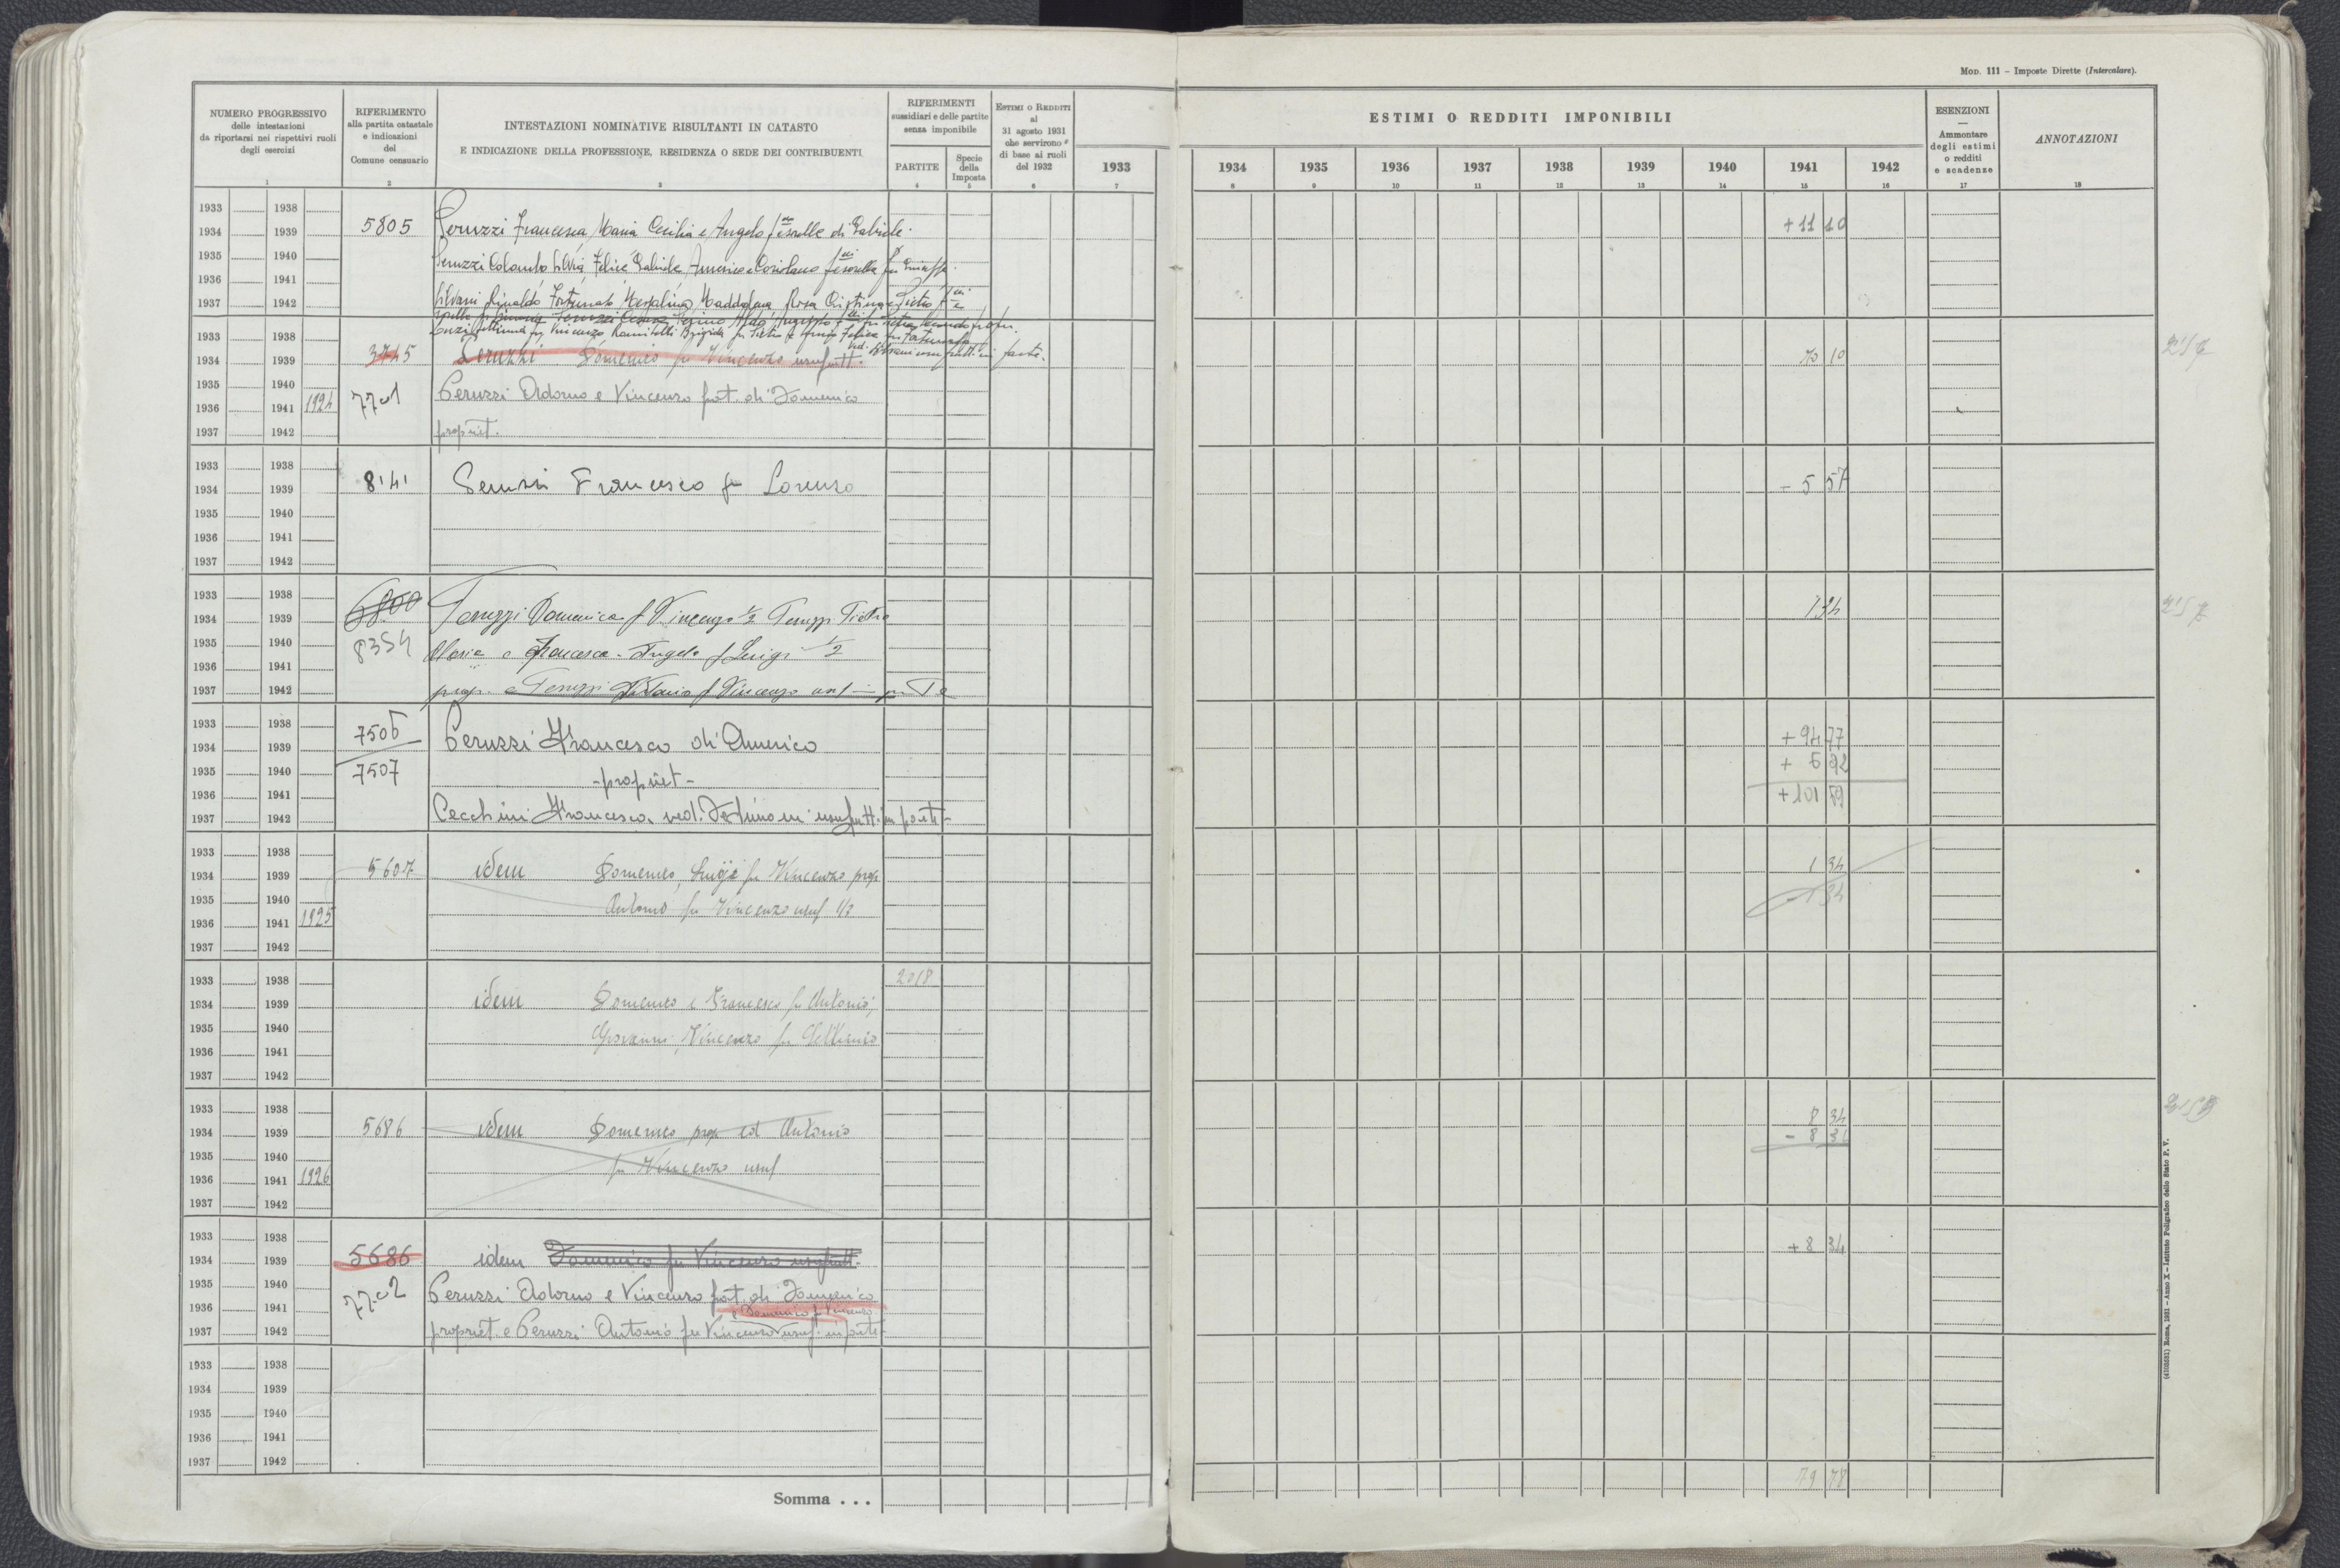 MOD. 111 - Imposte Dirette (Intercalare).
NUMERO PROGRESSIVO
delle intestazioni
da riportarsi nei rispettivi ruoli
degli esercizi
1
RIFERIMENTO
alla partita catastale
e indicazioni
del
Comune censuario
2
INTESTAZIONI NOMINATIVE RISULTANTI IN CATASTO
E INDICAZIONE DELLA PROFESSIONE, RESIDENZA O SEDE DEI CONTRIBUENTI
3
RIFERIMENTI
sussidiari e delle partite
senza imponibile
PARTITE
4
Specie
della
Imposta
5
ESTIMI O REDDITI
al
31 agosto 1931
che servirono
di base ai ruoli
del 1932
6
1933
7
ESTIMI O REDDITI IMPONIBILI
1934 1935 1936 1937 1938 1939 1940 1941 1942
8 9 10 11 12 13 14 15 16
ESENZIONI
Ammontare
degli estimi
o redditi
e scadenze
17
ANNOTAZIONI
18
1933 1938
1934 1939 5805 Peruzzi Francesca, Maria Cecilia e Angelo di Gabriele + 11 10
1935 1940
Peruzzi Colombo Silvia, Felice Gabriele Americo e Coriolano
1936 1941
1937 1942 Silvani Rinaldo Fortunato Maddalena Rosa Cristina e Pietro
1933 1938
1934 1939 3745 Peruzzi Domenico fu Vincenzo usufrutt. 70 10
1935 1940
1936 1941 1924 7701 Peruzzi Adorno e Vincenzo frat. di Domenico
1937 1942 propriet.
1933 1938
1934 1939 8141 Peruzzi Francesco fu Lorenzo - 5 57
1935 1940
1936 1941
1937 1942
1933 1938
1934 1939 6800 Peruzzi Domenico f Vincenzo 1/2 Peruzzi Pietro 1 34
1935 1940 8354 Maria e Francesca - Angela f Luigi 1/2
1936 1941
1937 1942 prop. e Peruzzi f Vincenzo
1933 1938 7506
1934 1939 Peruzzi Francesco di Americo + 94 77
1935 1940 7507 - propriet - + 6 92
1936 1941 + 101 69
1937 1942 Cecchini Francesca, ved. usufrutt. in parte -
1933 1938
1934 1939 5607 idem Domenico, Luigi fu Vincenzo prop. 1 34
1935 1940 Antonio fu Vincenzo usuf 1/3 - 1 34
1936 1941 1925
1937 1942
1933 1938 2018
1934 1939 idem Domenico e Francesco fu Antonio,
1935 1940 Giovanni Vincenzo fu
1936 1941
1937 1942
1933 1938 8 34
1934 1939 5686 idem Domenico prop ed Antonio - 8 34
1935 1940 fu Vincenzo usuf
1936 1941 1926
1937 1942
1933 1938
1934 1939 5686 idem Domenico fu Vincenzo usufrutt. + 8 34
1935 1940 7702 Peruzzi Adorno e Vincenzo frat. di Domenico
1936 1941 e Domenico fu Vincenzo
1937 1942 propriet. e Peruzzi Antonio fu Vincenzo usuf. in parte
1933 1938
1934 1939
1935 1940
1936 1941
1937 1942
Somma . . . 79 78
(4105331) Roma, 1931 - Anno X - Istituto Poligrafico dello Stato P. V.